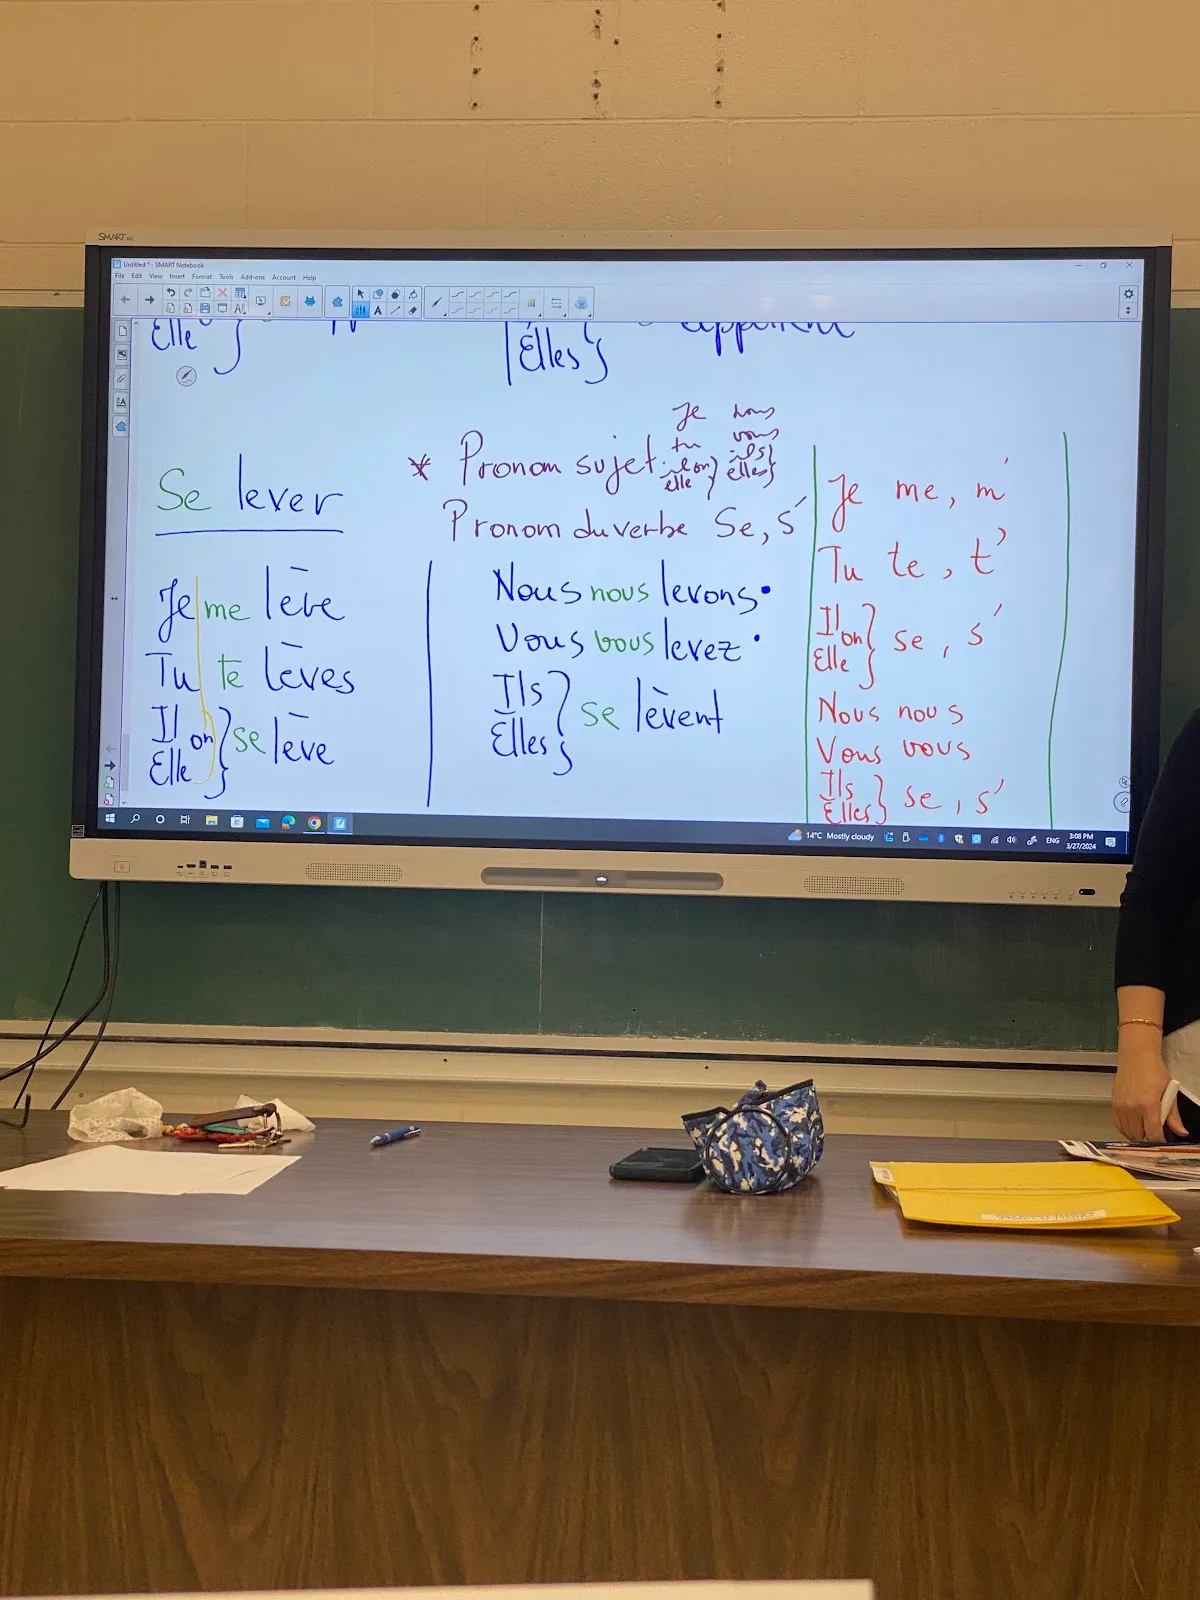 SMART
Untitled * - SMART Notebook
File Edit View Insert Format Tools Add-ons Account Help
Elle }
Elles }
Se lever
* Pronom sujet
Je nous
tu vous
il on ils }
elle } elles }
Pronom du verbe Se, s'
Je me lève
Tu te lèves
Il on
Elle } se lève
Nous nous levons.
Vous vous levez.
Ils
Elles } se lèvent
Je me, m'
Tu te, t'
Il on
Elle } se, s'
Nous nous
Vous vous
Ils
Elles } se, s'
14°C Mostly cloudy
ENG
3:08 PM
3/27/2024